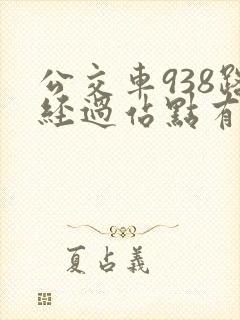 公交車938路
經過佔點有
夏占義